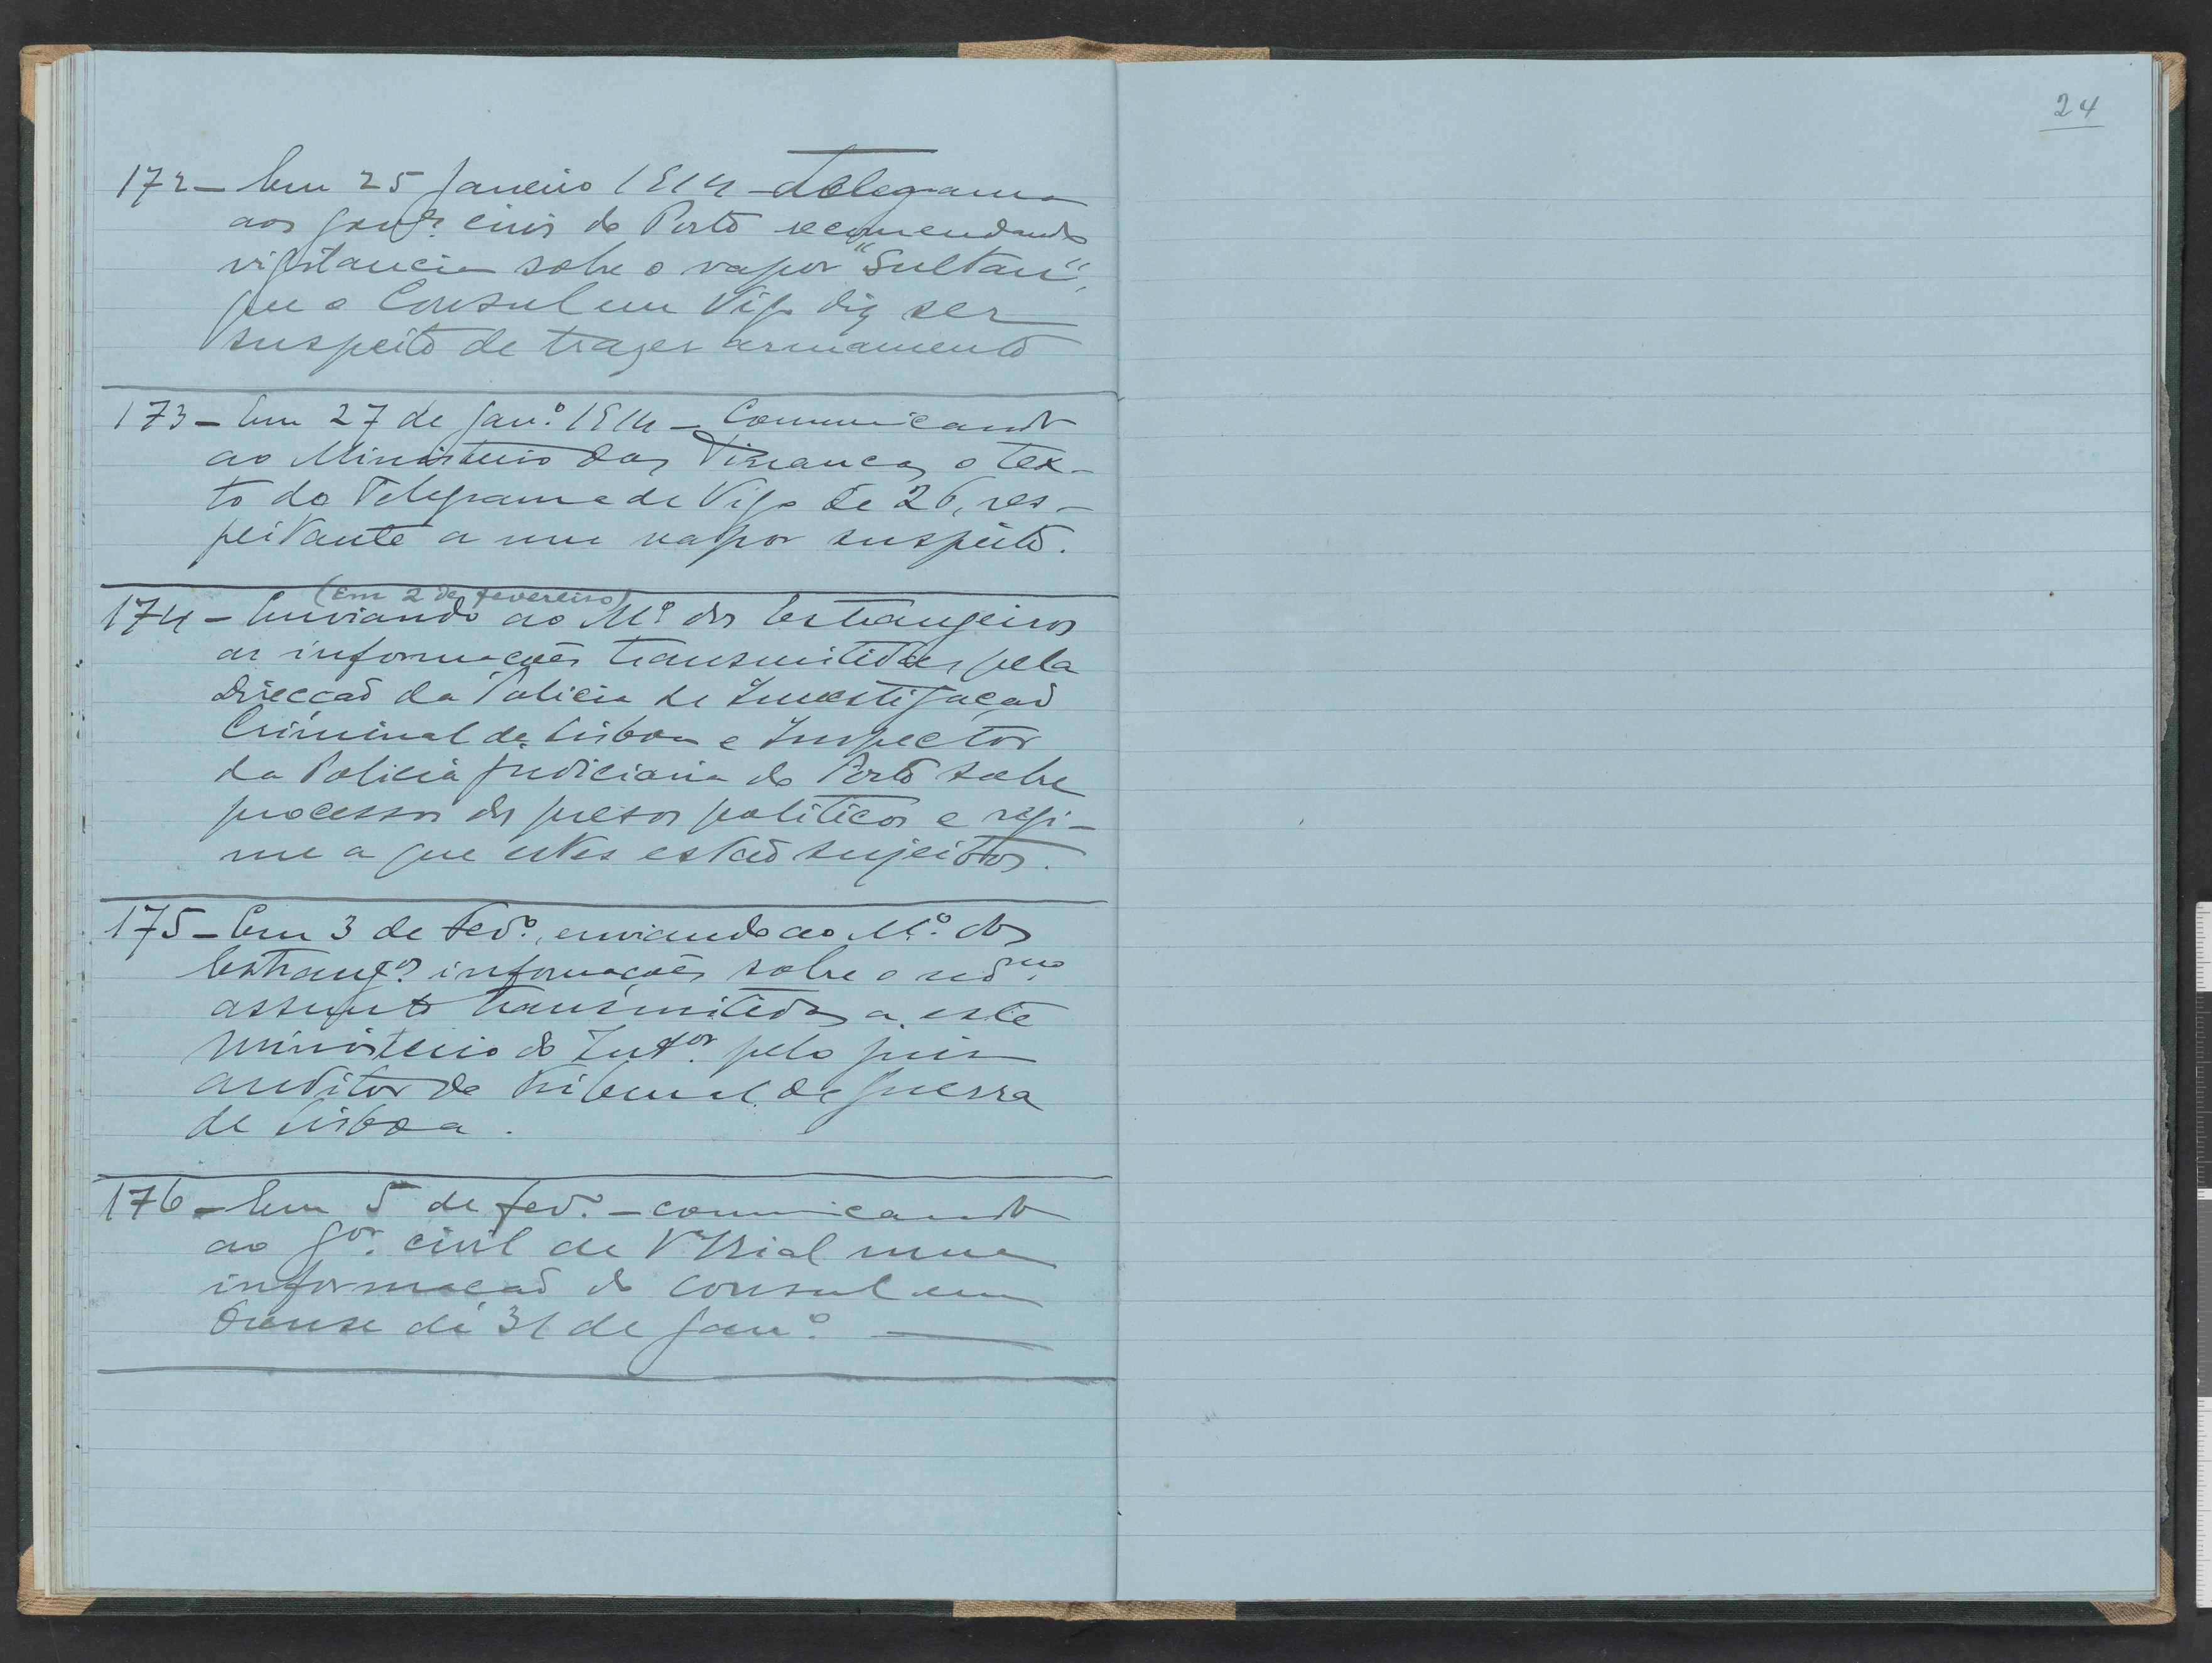 24
172 - Em 25 Janeiro 1914 - Telegrama
aos gov.es civis do Porto recomendando
vigilancia sobre o vapor "Sultan",
que o Consul em Vigo diz ser
suspeito de trazer armamento
173 - Em 27 de Jan.º 1914 - Comunicando
ao Ministerio das Finanças o tex-
to do Telegrama de Vigo de 26, res-
peitante a um vapor suspeito.
(Em 2 de fevereiro)
174 - Enviando ao M.º dos Estrangeiros
as informações transmitidas pela
Direcção da Policia de Investigação
Criminal de Lisboa e Inspector
da Policia Judiciaria do Porto sobre
processos dos presos politicos e regi-
me a que estes estão sujeitos.
175 - Em 3 de Fev.º, enviando ao M.º dos
Estrang.os informações sobre o
assunto transmitidas a este
Ministerio do Int.or pelo juiz
auditor do Tribunal de guerra
de Lisboa.
176 - Em 5 de fev.º - comunicando
ao g.or civil de V.ª Real uma
informação do consul em
Orense de 31 de Jan.º